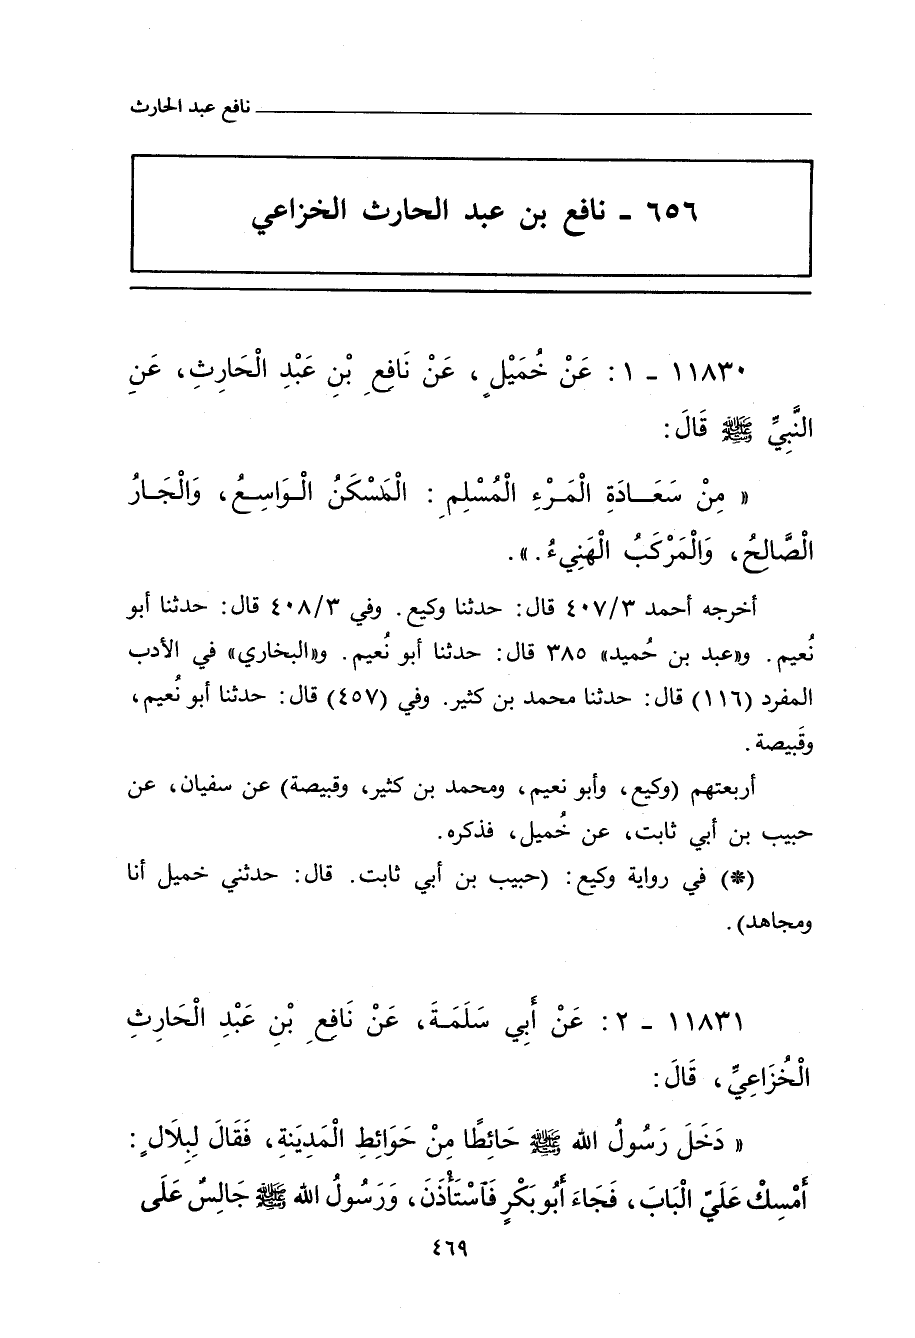 نافع عبد الحارث
٦٥٦ - نافع بن عبد الحارث الخزاعي
١١٨٣٠ - ١: عَنْ خُمَيْلٍ، عَنْ نَافِعِ بْنِ عَبْدِ الْحَارِثِ، عَنِ
النَّبِيِّ ﷺ قَالَ:
« مِنْ سَعَـادَةِ الْمَـرْءِ الْمُسْلِمِ: الْمَسْكَنُ الْـوَاسِـعُ، وَالْجَـارُ
الصَّالِحُ، وَالْمَرْكَبُ الْهَنِيءُ.».
أخرجه أحمد ٤٠٧/٣ قال: حدثنا وكيع. وفي ٤٠٨/٣ قال: حدثنا أبو
نُعيم. و«عبد بن حُميد» ٣٨٥ قال: حدثنا أبو نُعيم. و«البخاري» في الأدب
المفرد (١١٦) قال: حدثنا محمد بن كثير. وفي (٤٥٧) قال: حدثنا أبو نُعيم،
وقَبيصة.
أربعتهم (وكيع، وأبو نعيم، ومحمد بن كثير، وقبيصة) عن سفيان، عن
حبيب بن أبي ثابت، عن خُميل، فذكره.
(*) في رواية وكيع: (حبيب بن أبي ثابت. قال: حدثني خميل أنا
ومجاهد).
١١٨٣١ - ٢: عَنْ أَبِي سَلَمَـةَ، عَنْ نَافِعِ بْنِ عَبْدِ الْحَارِثِ
الْخُزَاعِيِّ، قَالَ:
« دَخَلَ رَسُولُ الله ﷺ حَائِطًا مِنْ حَوَائِطِ الْمَدِينَةِ، فَقَالَ لِبِلَالٍ:
أَمْسِكْ عَلَيَّ الْبَابَ، فَجَاءَ أَبُو بَكْرٍ فَاسْتَأْذَنَ، وَرَسُولُ الله ﷺ جَالِسٌ عَلَى
٤٦٩